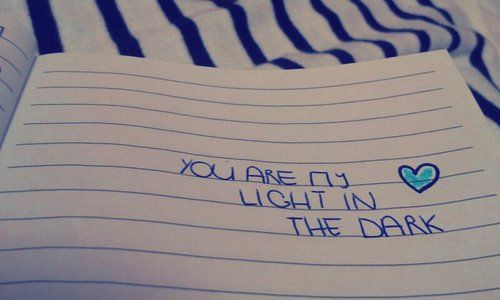 YOU ARE MY
LIGHT IN
THE DARK